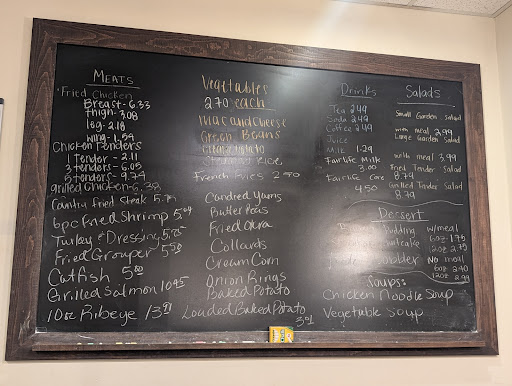 MEATS
Fried Chicken
Breast - 6.33
thigh - 3.08
leg - 2.18
wing - 1.59
Chicken Tenders
1 Tender - 2.11
3 tenders - 6.05
5 tenders - 9.74
grilled Chicken - 6.38
Country fried Steak 5.75
6pc Fried Shrimp 5.00
Turkey & Dressing 5.75
Fried Grouper 5.50
Catfish 5.00
Grilled Salmon 10.95
10oz Ribeye 13.
Vegetables
2.70 each
mac and cheese
Green Beans
Rice
French Fries 2
Candied Yams
Butter Peas
Fried Okra
Collards
Cream Corn
Onion Rings
Baked Potato
Loaded Baked Potato
3.
Drinks
Tea 2.49
Soda 2.49
Coffee 2.49
Juice
Milk 1.29
Fairlife Milk
3.00
Fairlife Core
4.50
Salads
Small Garden Salad
with meal 2.99
Large Garden Salad
with meal 3.99
Fried Tender Salad
8.79
Grilled Tender Salad
8.79
Dessert
Pudding w/meal
6oz 1.75
12oz 2.75
Cobbler No meal
6oz 2.40
12oz 2.99
Soups:
Chicken Noodle Soup
Vegetable Soup